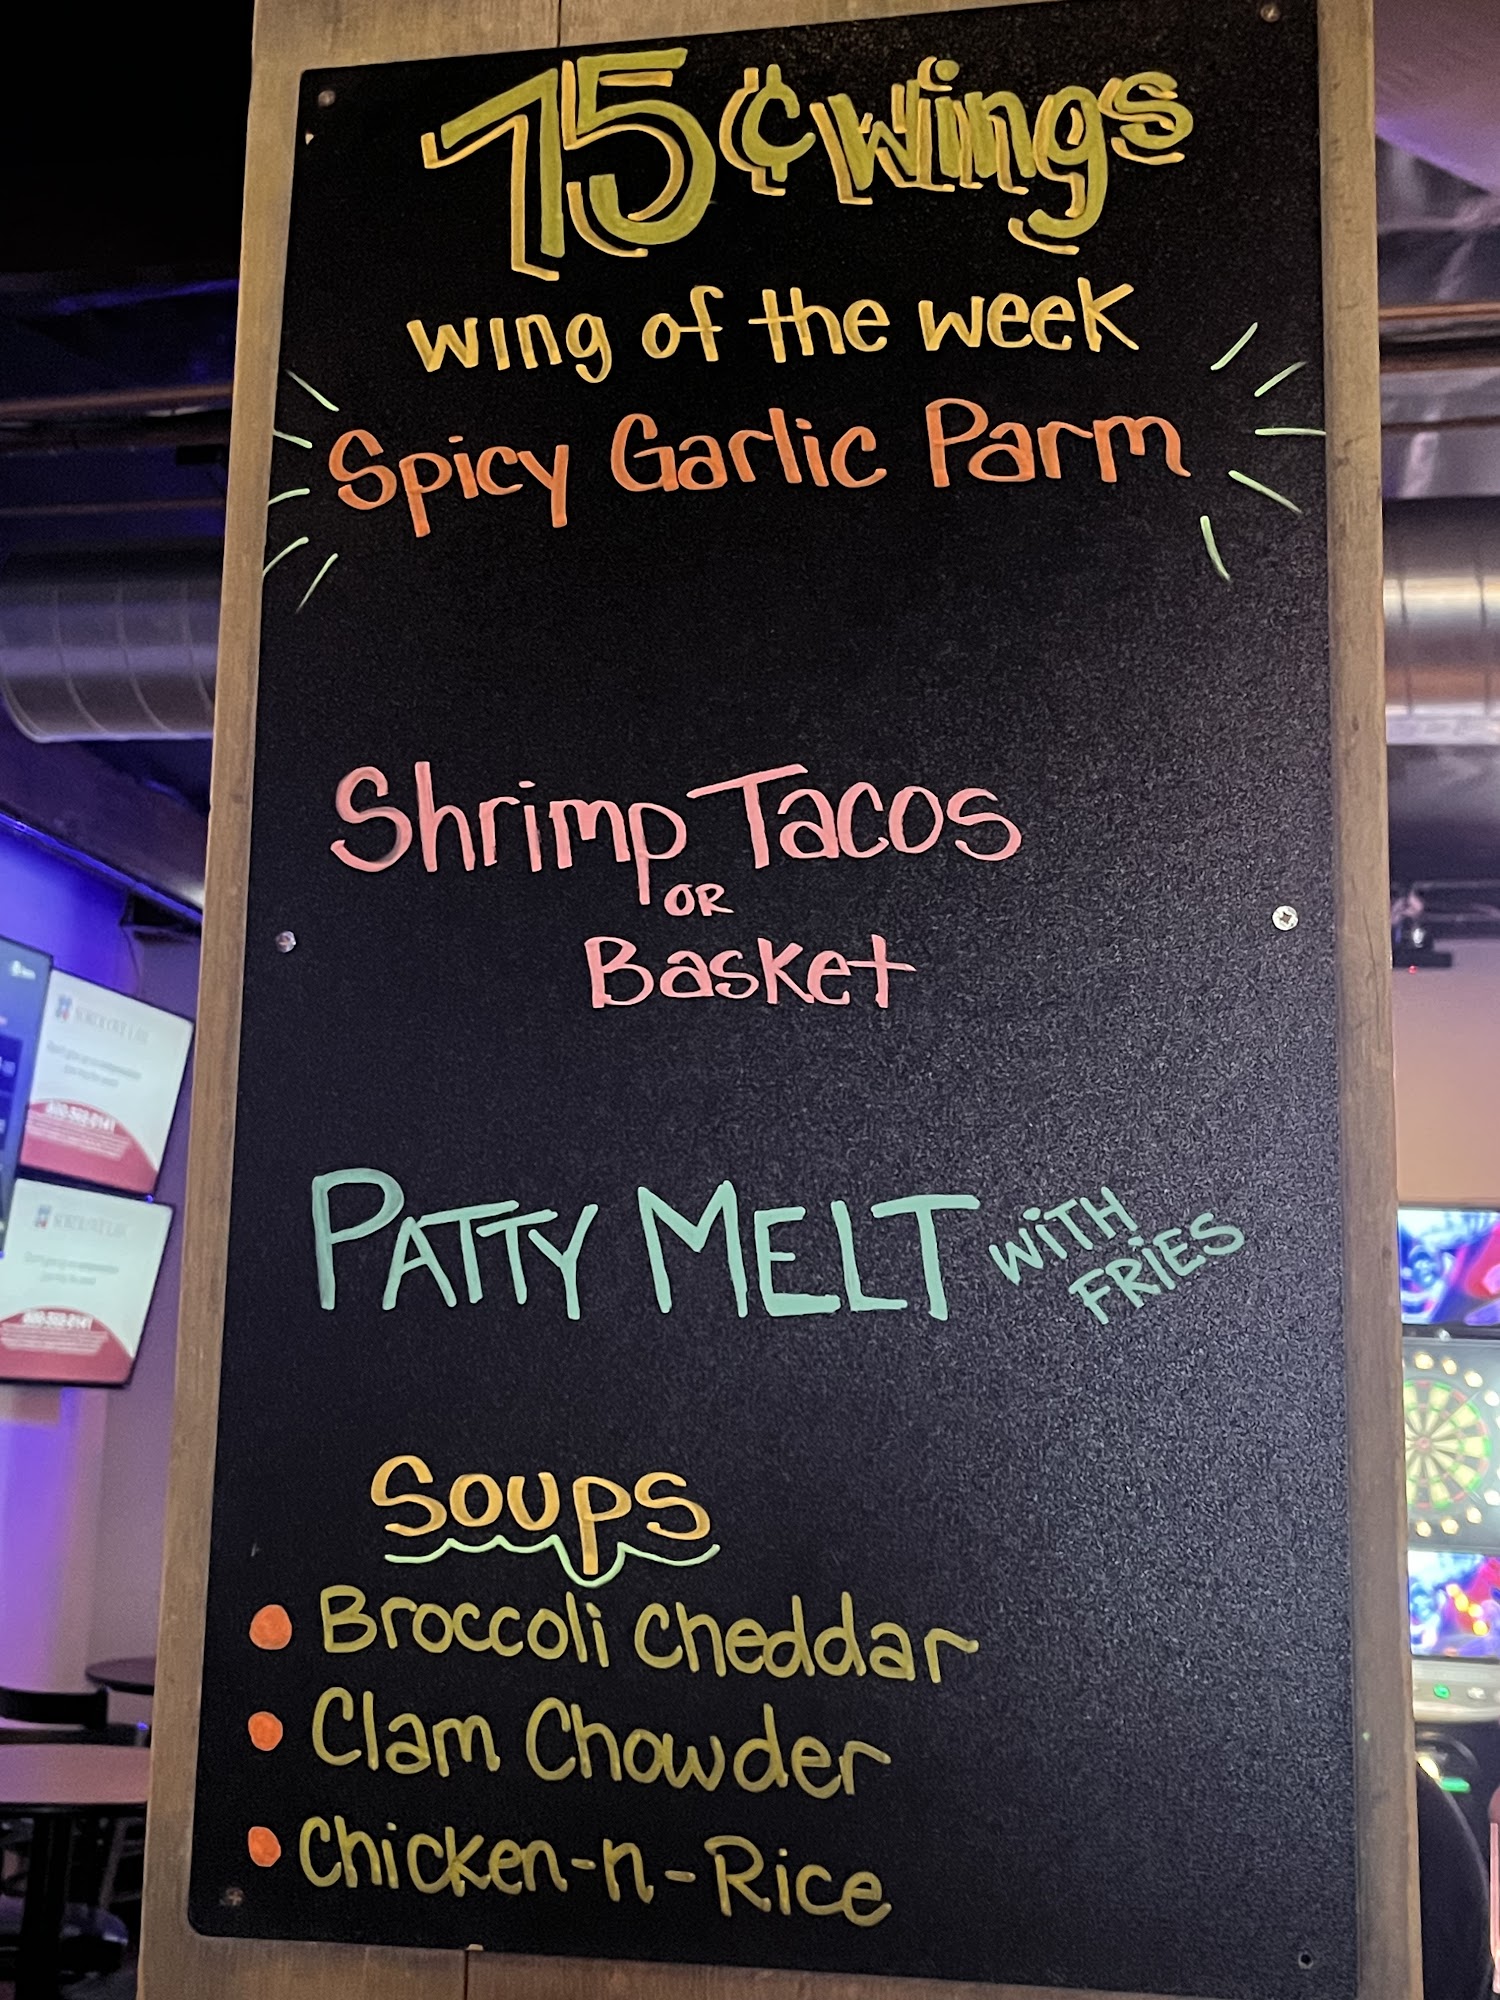 75¢ Wings
wing of the week
Spicy Garlic Parm
Shrimp Tacos
OR
Basket
PATTY MELT WiTH
FRiES
Soups
Broccoli Cheddar
Clam Chowder
Chicken-n-Rice
800-592-0141